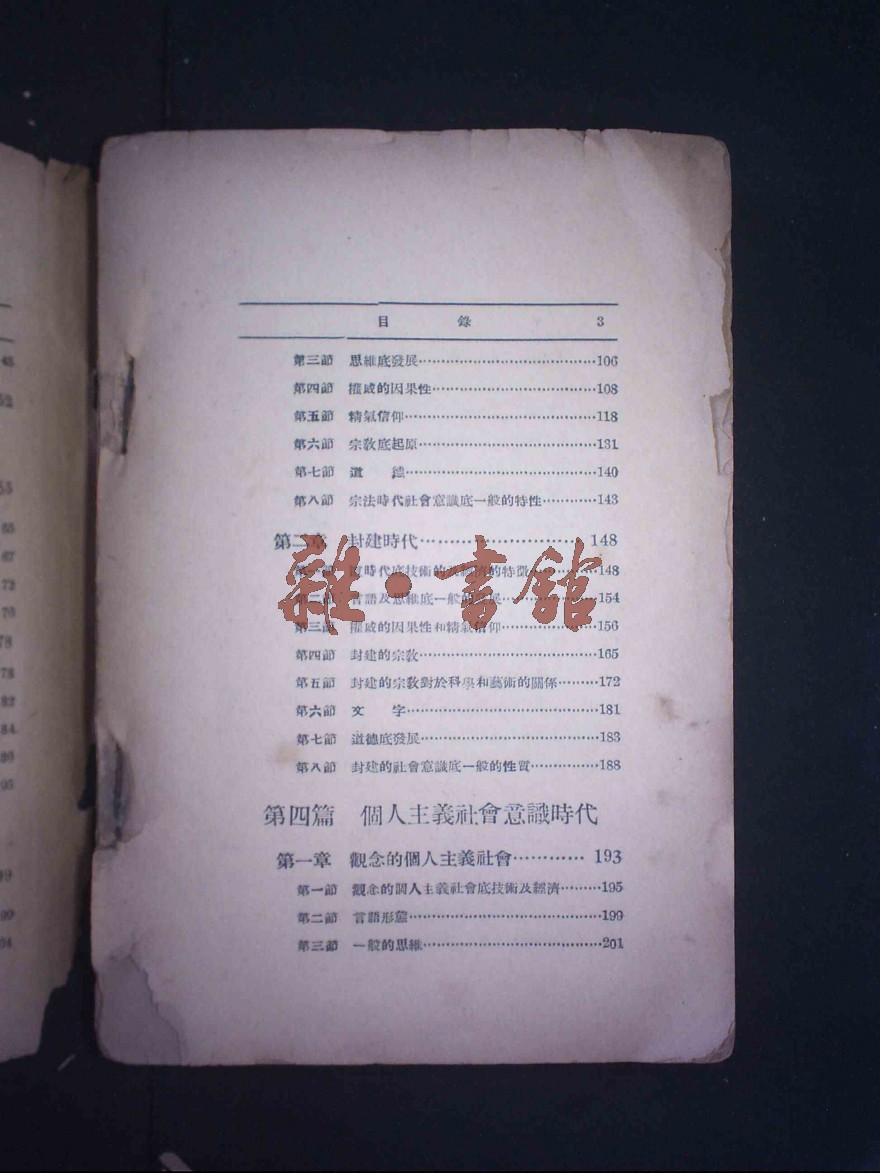 目錄 3
第三節 思維底發展 106
第四節 權威的因果性 108
第五節 精氣信仰 118
第六節 宗教底起原 131
第七節 道德 140
第八節 宗法時代社會意識底一般的特性 143
第二章 封建時代 148
第一節 時代底技術的及經濟的特徵 148
第二節 言語及思維底一般的發展 154
第三節 權威的因果性和精氣信仰 156
第四節 封建的宗教 165
第五節 封建的宗教對於科學和藝術的關係 172
第六節 文字 181
第七節 道德底發展 183
第八節 封建的社會意識底一般的性質 188
第四篇 個人主義社會意識時代
第一章 觀念的個人主義社會 193
第一節 觀念的個人主義社會底技術及經濟 195
第二節 言語形態 199
第三節 一般的思維 201
雜·書館